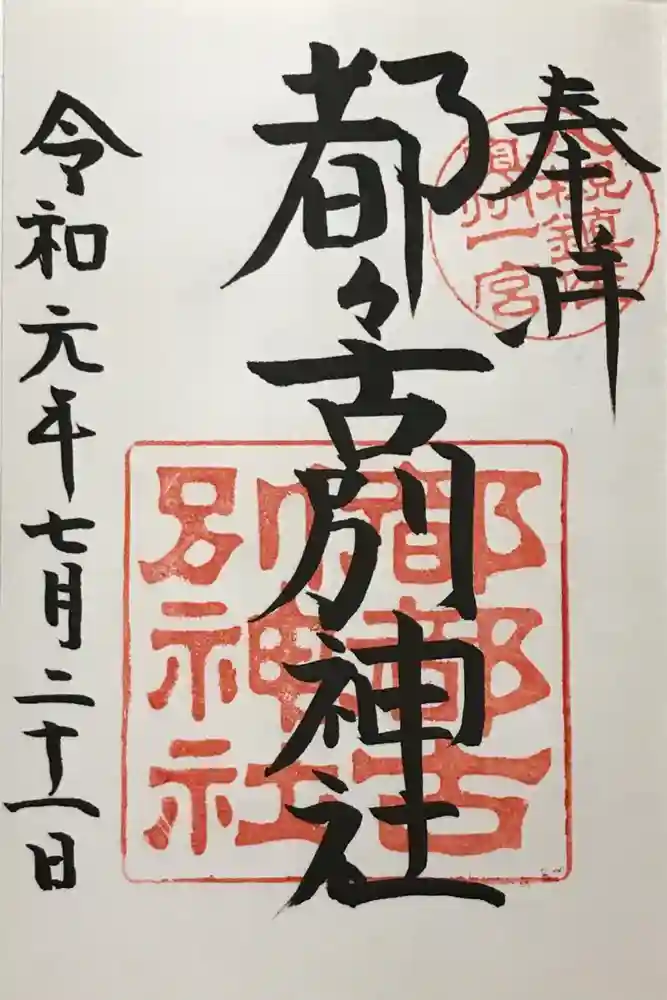 奉拝
一宮
都々古別神社
都都古
別神社
令和元年七月二十一日